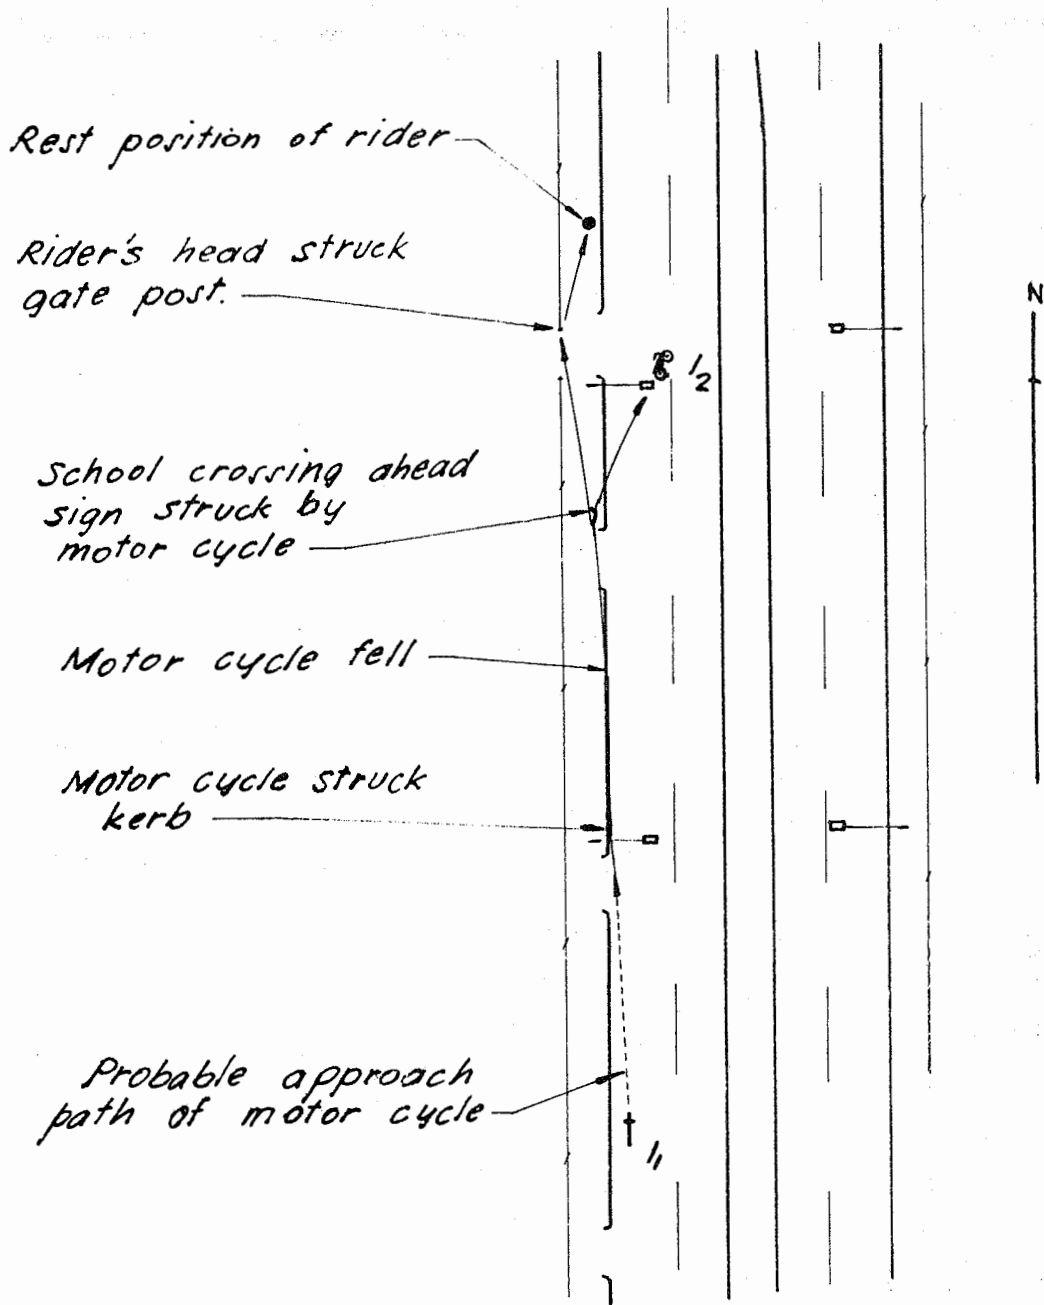 Rest position of rider
Rider's head struck
gate post.
N
1/2
School crossing ahead
sign struck by
motor cycle
Motor cycle fell
Motor cycle struck
kerb
Probable approach
path of motor cycle
1/1